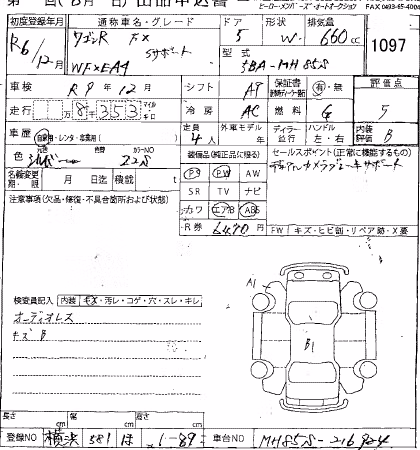 ヒーロー・メンバーズ・オートオークション
FAX 0493-65-400
初度登録年月 通称車名・グレード ドア 形状 排気量
R6/12月 ワゴンR FX 5 W. 660cc 1097
Sサポート
WFXEA4 型式 5BA-MH85S
車検 R9年12月 シフト AT 保証書 有・無 評価点
走行 8千353 マイル キロ 冷房 AC 燃料 G 5
車歴 自家用・レンタ・営業用( ) 定員 4人 外車モデル 年 ディーラー ハンドル 左・右 内装評価 B
色 元色 シルバー 色替 カラーNO Z2S 装備品(純正品に限る) セールスポイント(正常に機能するもの)
デュアルカメラブレーキサポート
名義変更期限 月 日迄 積載 t PS PW AW
注意事項(欠品・修復・不具合箇所および状態) SR TV ナビ
カワ エアB ABS
R券 6470 FW キズ・ヒビ割・リペア跡・X要
検査員記入 内装 キズ・汚レ・コゲ・穴・スレ・キレ A1
オーディオレス
キズB B1
長さ cm 幅 cm 高さ cm
登録NO 横浜 581 ほ 1-89 車台NO MH85S-216924